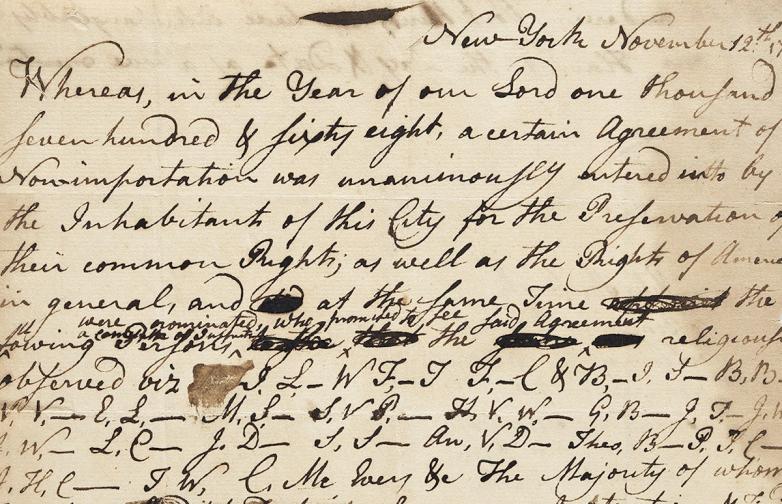 New York November 12th
Whereas, in the Year of our Lord one thousand
seven hundred & sixty eight, a certain Agreement of
Non-importation was unanimously entered into by
the Inhabitants of this City for the Preservation
their common Rights; as well as the Rights of
in general, and at the same Time the
were nominated, who promised to see said Agreement
a committee of
Persons, the religious
observed viz J. L – W F – T F – C & B – J. T – B, B
V. V — E. L. — M. S — S. V P. — H V. W — G. B — J. T —
W — L. C — J. D — S. S — An, V. D — Theo, B — P. T. C —
J. H, C — T. W, C. Mc Evers &c The Majority of whom